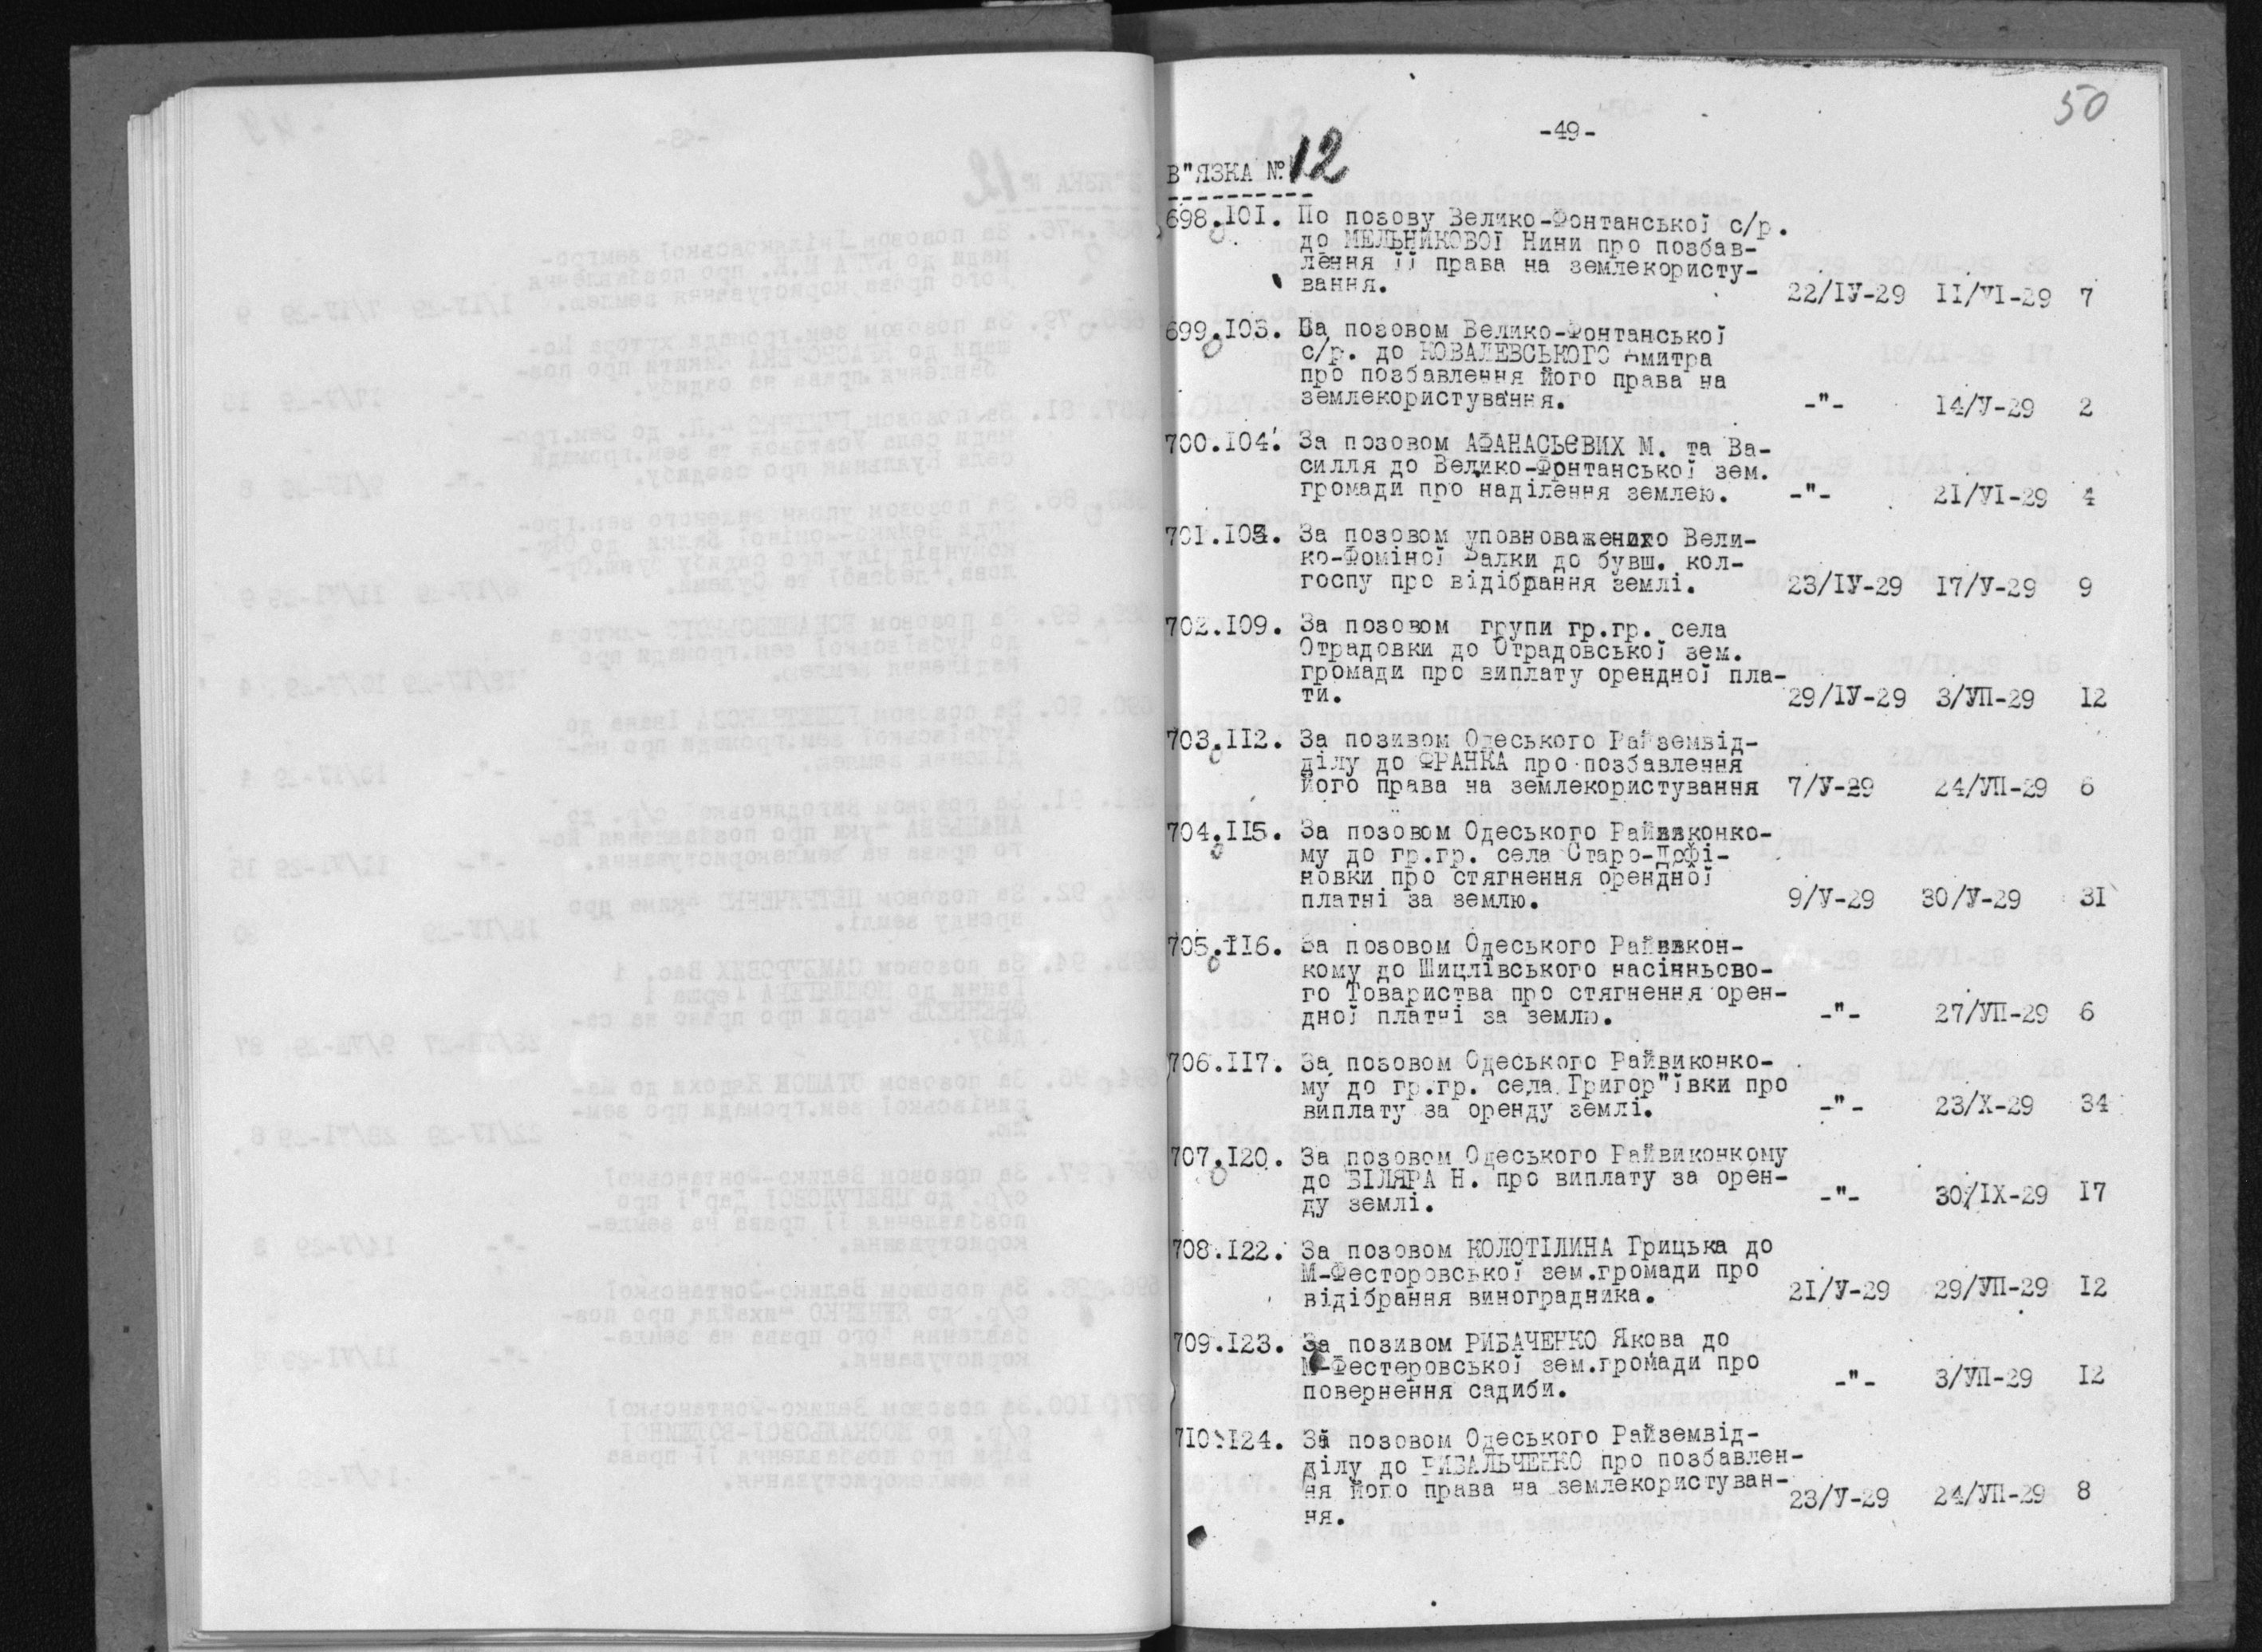 50
-49-
В"ЯЗКА № 12
698.IOI. По позову Велико-Фонтанської с/р.
до МЕЛЬНИКОВОЇ Нини про позбав-
лення її права на землекористу-
вання. 22/ІУ-29 ІІ/УІ-29 7
699.IO3. За позовом Велико-Фонтанської
с/р. до КОВАЛЕВСЬКОГО Дмитра
про позбавлення його права на
землекористування. -"- 14/У-29 2
700.IO4. За позовом АФАНАСЬЄВИХ М. та Ва-
силля до Велико-Фонтанської зем.
громади про наділення землею. -"- 2І/УІ-29 4
701. За позовом уповноваженихо Вели-
ко-Фоміної Балки до бувш. кол-
госпу про відібрання землі. 23/ІУ-29 І7/У-29 9
702.IO9. За позовом групи гр.гр. села
Отрадовки до Отрадовської зем.
громади про виплату орендної пла-
ти. 29/ІУ-29 3/УП-29 І2
703.II2. За позивом Одеського Райземвід-
ділу до ФРАНКА про позбавлення
його права на землекористування 7/У-29 24/УП-29 6
704.II5. За позовом Одеського Райвиконко-
му до гр.гр. села Старо-Дофі-
новки про стягнення орендної
платні за землю. 9/У-29 30/У-29 3І
705.II6. За позовом Одеського Райвикон-
кому до Шицлівського насінньово-
го Товариства про стягнення орен-
дної платні за землю. -"- 27/УП-29 6
706.II7. За позовом Одеського Райвиконко-
му до гр.гр. села Григор"ївки про
виплату за оренду землі. -"- 23/Х-29 34
707.I20. За позовом Одеського Райвиконкому
до БІЛЯРА Н. про виплату за орен-
ду землі. -"- 30/ІХ-29 І7
708.I22. За позовом КОЛОТІЛИНА Грицька до
М-Фесторовської зем.громади про
відібрання виноградника. 2І/У-29 29/УП-29 І2
709.I23. За позивом РИБАЧЕНКО Якова до
М-Фестеровської зем.громади про
повернення садиби. -"- 3/УП-29 І2
7IO.I24. За позовом Одеського Райземвід-
ділу до РИБАЛЬЧЕНКО про позбавлен-
ня його права на землекористуван-
ня. 23/У-29 24/УП-29 8